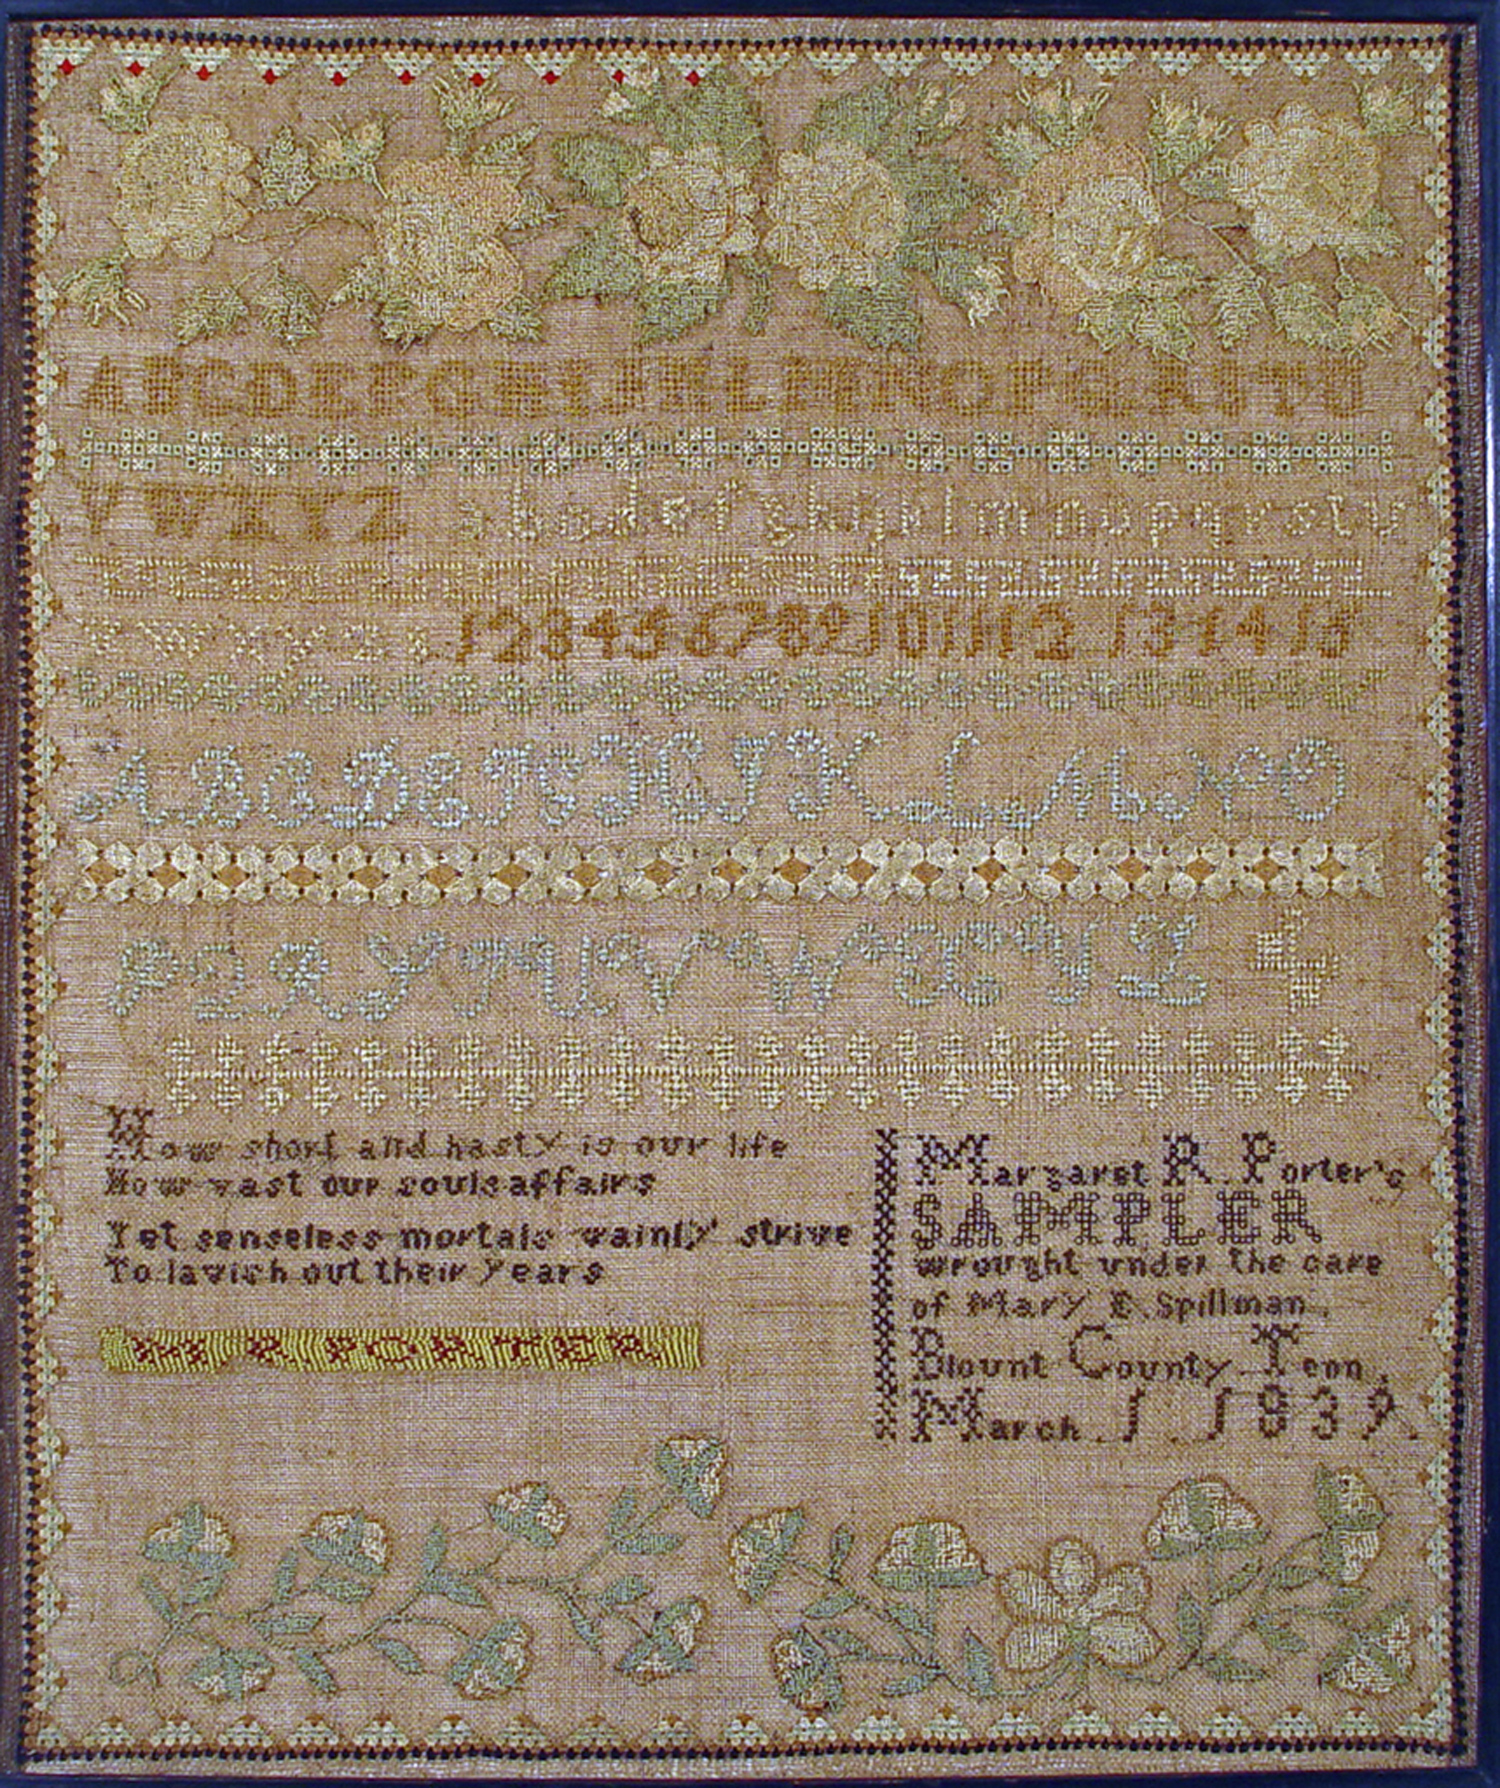 ABCDEFGHIJKLMNOPQRSTU
VWXYZ abcdefghijklmnopqrstuv
wxyz& 1 2 3 4 5 6 7 8 9 10 11 12 13 14 15
ABCDEFGHIJKLMNO
PQRSTUVWXYZ &
How short and hasty is our life
How vast our souls affairs
Yet senseless mortals vainly strive
To lavish out their years
M R PORTER
Margaret R. Porter's
SAMPLER
wrought under the care
of Mary E. Spillman.
Blount County Tenn.
March 1 1839